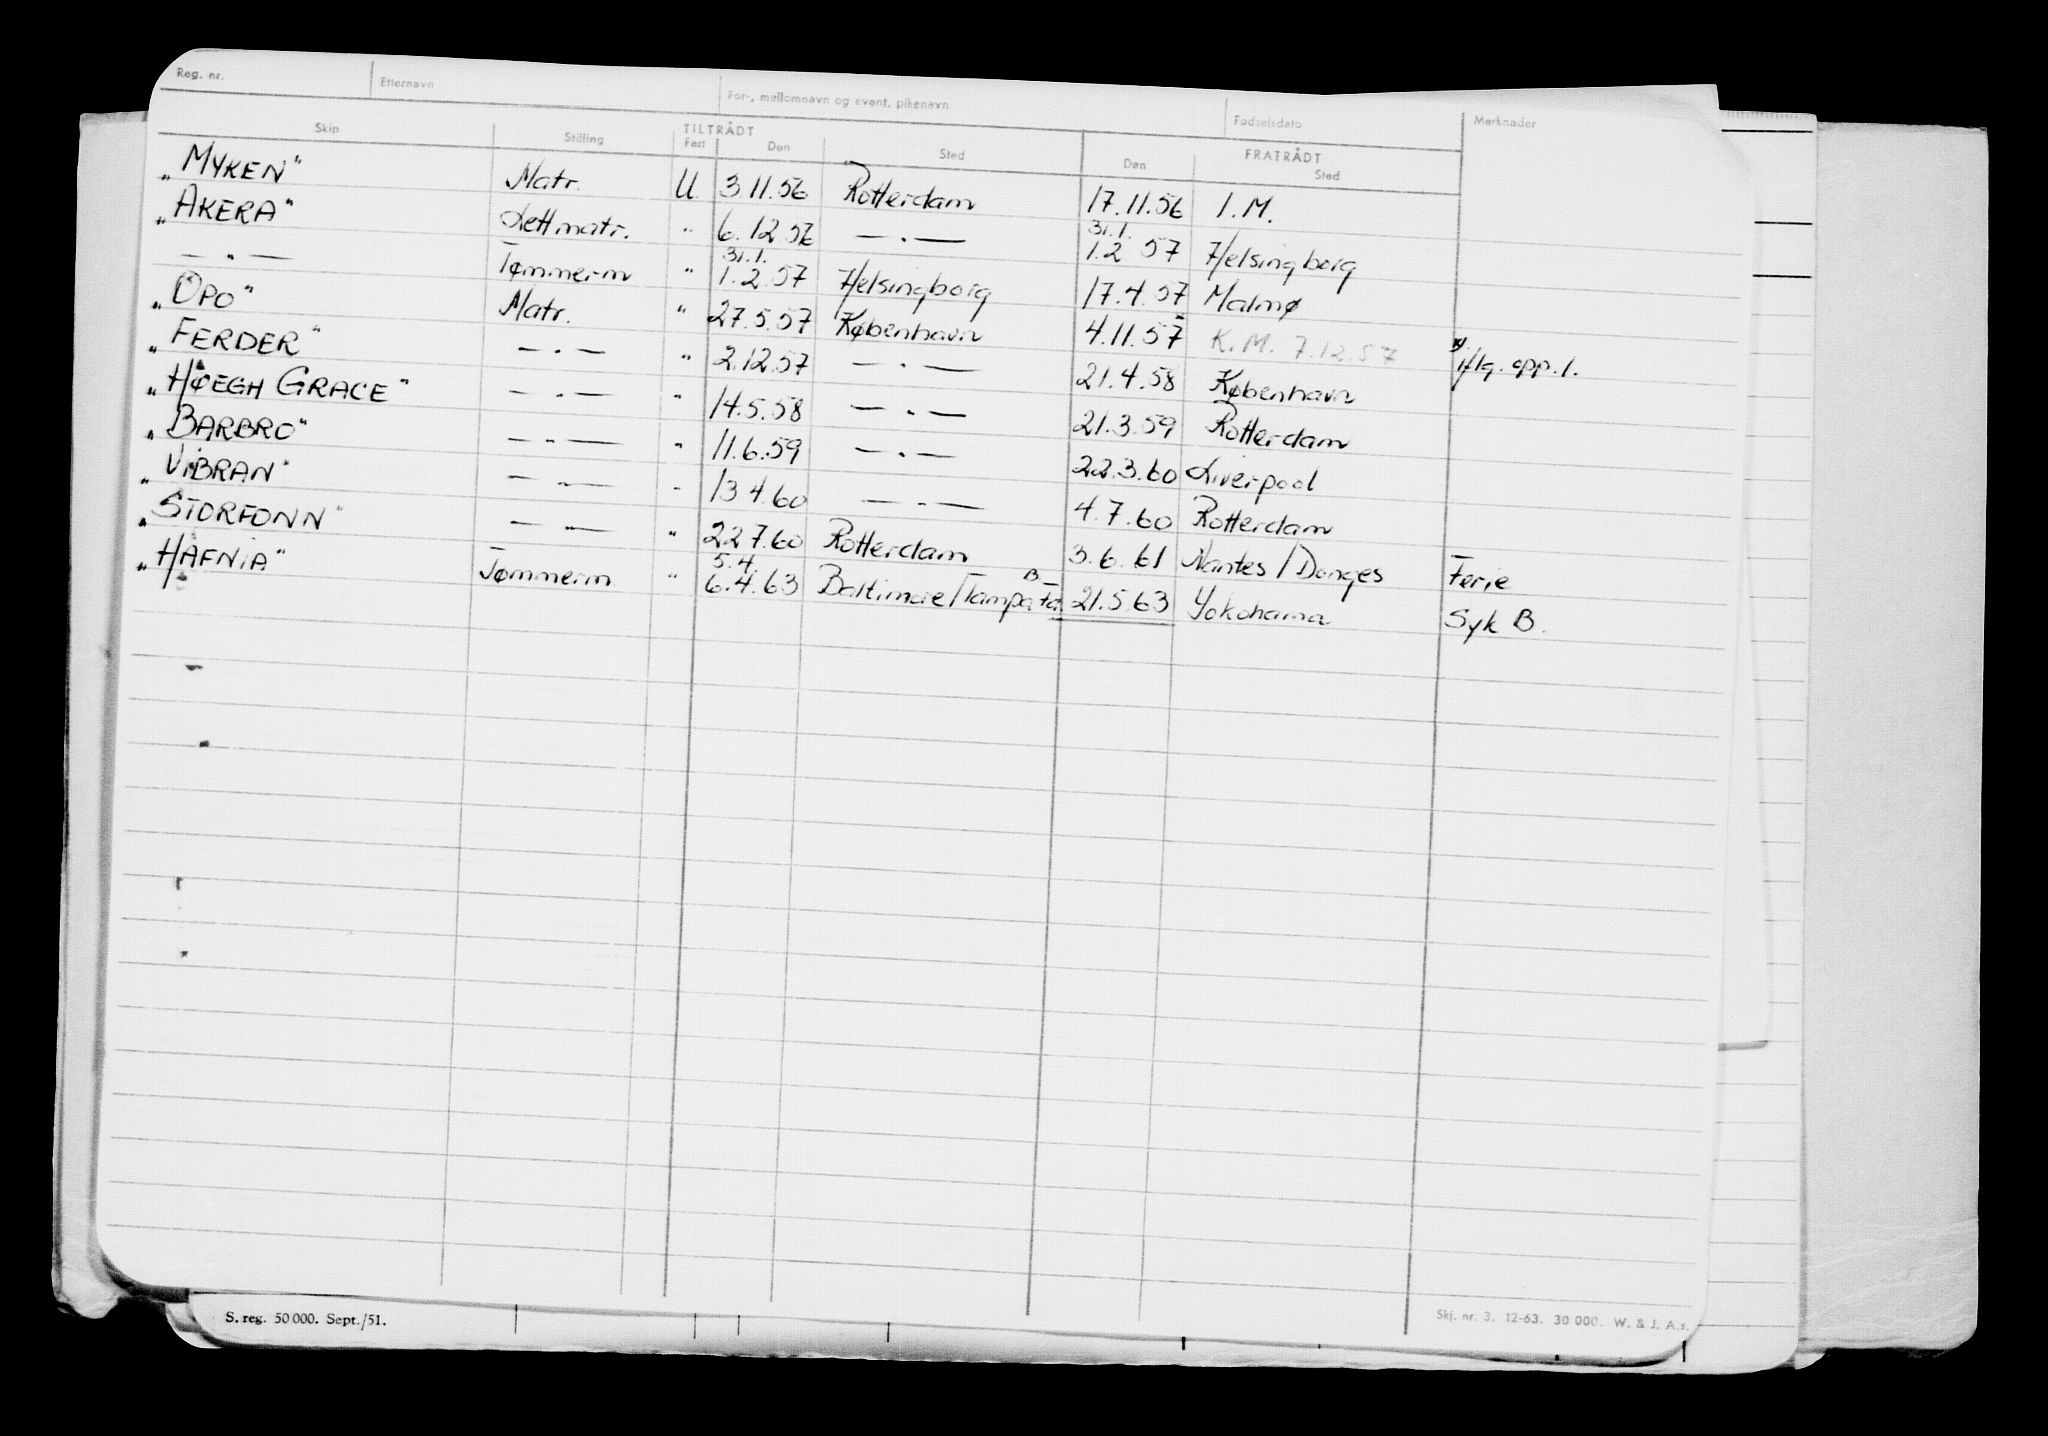 Reg. nr. Etternavn For-, mellomnavn og event. pikenavn Fødselsdato Merknader
Skip Stilling TILTRÅDT Fart Den Sted FRATRÅDT Den Sted
„MYKEN" Matr. U 3.11.56 Rotterdam 17.11.56 I.M.
„AKERA" Lettmatr. " 6.12.56 — . — 31.1. 1.2 57 Helsingborg
— " — Tømmerm " 31.1. 1.2.57 Helsingborg 17.4.57 Malmø
„OPO" Matr. " 27.5.57 København 4.11.57 K.M. 7.12.57 iflg. opp.l.
„FERDER" — . — " 2.12.57 — . — 21.4.58 København
„HØEGH GRACE" — . — " 14.5.58 — . — 21.3.59 Rotterdam
„BARBRO" — " — " 11.6.59 — . — 22.3.60 Liverpool
„VIBRAN" — " — " 13 4.60 — " — 4.7.60 Rotterdam
„STORFONN" — " — " 22 7.60 Rotterdam 3.6.61 Nantes/Donges Ferie
„HAFNIA" Tømmerm " 5.4. 6.4.63 Baltimore/Tampa Fa. B 21.5.63 Yokohama Syk B.
S. reg. 50 000. Sept./51.
Skj. nr. 3. 12-63. 30 000. W. & J. A.s.